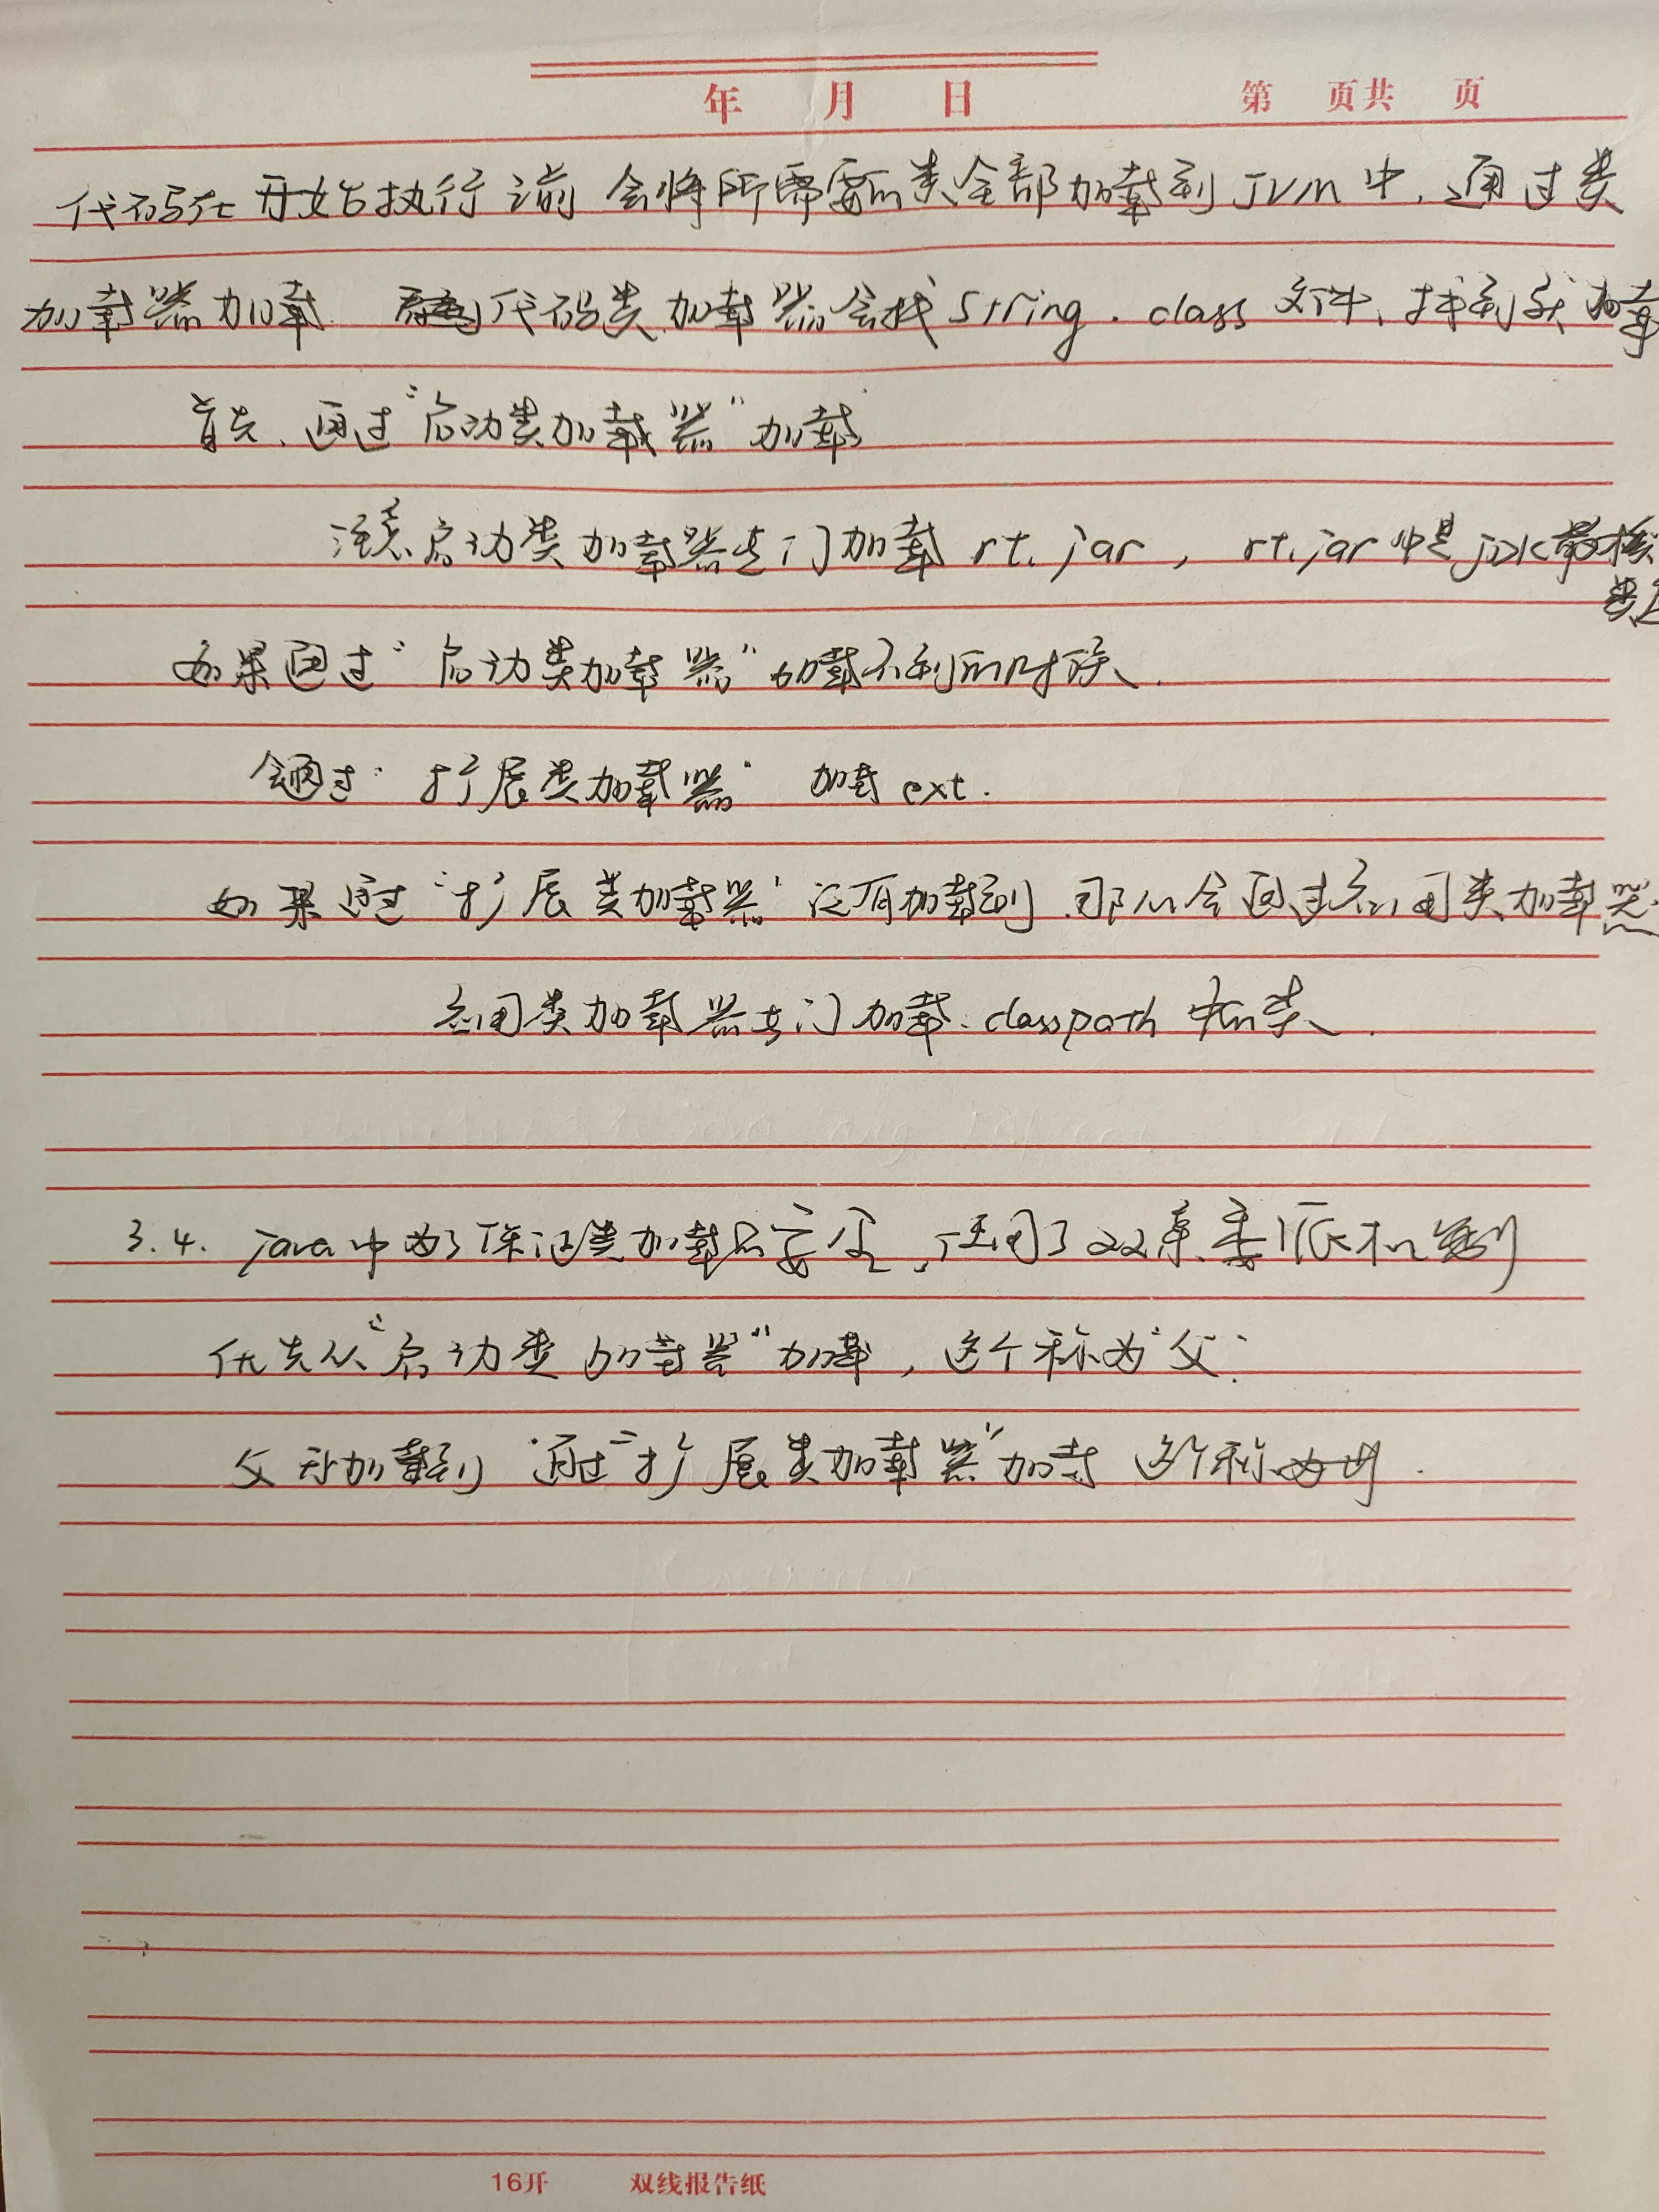 年 月 日 第 页共 页
代码在开始执行之前 会将所需要的类全部加载到JVM中.通过类
加载器加载. 看到代码类加载器会找String.class文件,找到就加载
首先.通过"启动类加载器"加载
注意启动类加载器专门加载rt.jar, rt.jar中是JDK最核
类
如果通过"启动类加载器"加载不到的时候.
会通过"扩展类加载器" 加载ext.
如果通过"扩展类加载器"没有加载到.那么会通过应用类加载器.
应用类加载器专门加载:classpath中的类.
3.4. java中为了保证类加载的安全,使用了双亲委派机制
优先从"启动类加载器"加载,这个称为"父".
父 加载到 通过"扩展类加载器"加载 这个称为母.
16开 双线报告纸